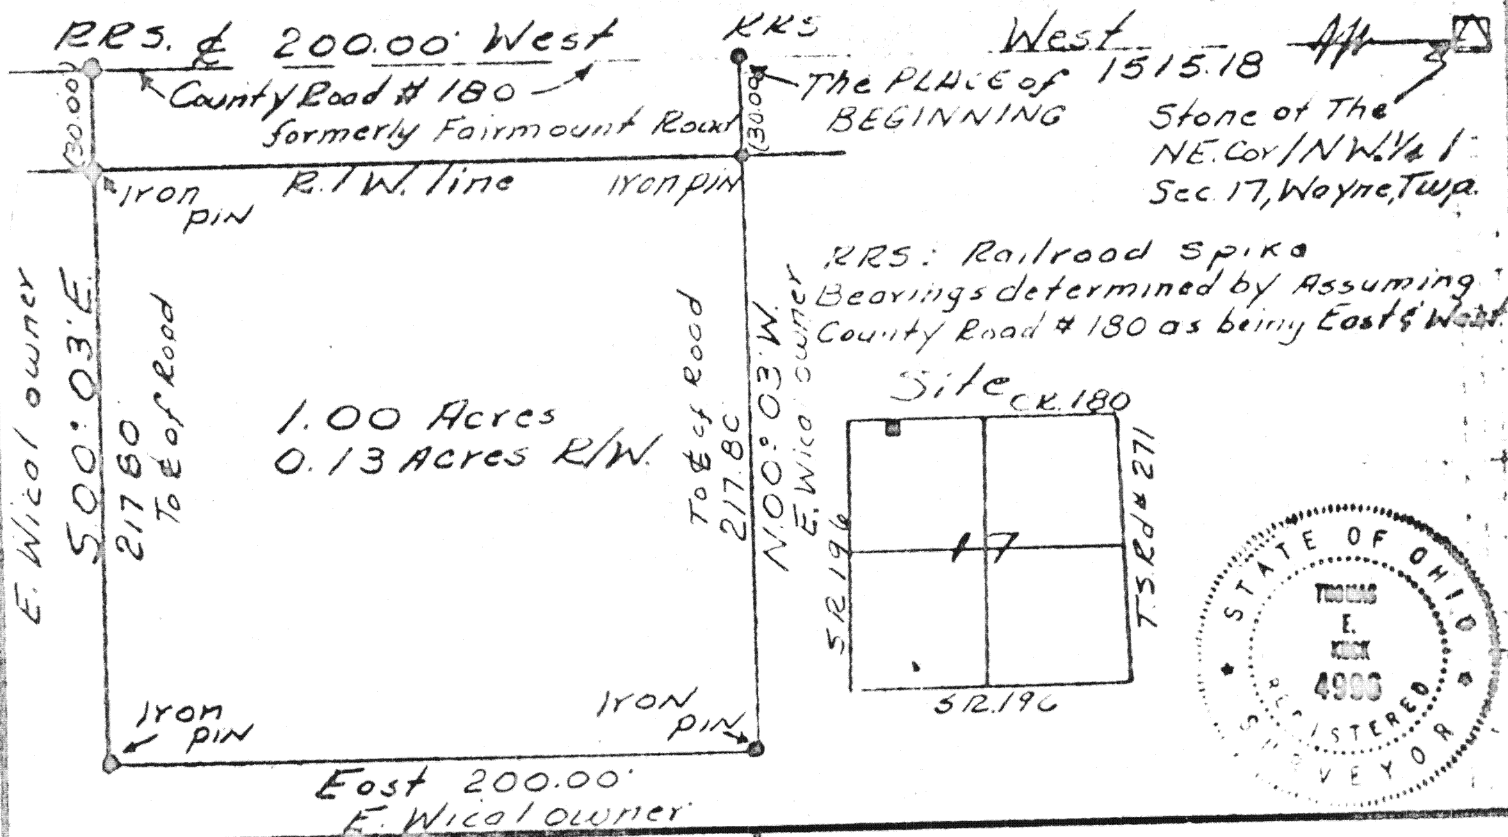 RRS. ℄ 200.00' West
RRS
West
1515.18
County Road # 180
formerly Fairmount Road
The PLACE of
BEGINNING
Stone at The
NE. Cor/NW.1/4
Sec. 17, Wayne, Twp.
(30.00)
(30.00)
R./W. line
Iron
PIN
Iron pin
RRS: Railroad Spike
Bearings determined by Assuming
County Road # 180 as being East & West.
E. Wical owner
S.00°:03'E.
217.80
To ℄ of Road
1.00 Acres
0.13 Acres R/W.
To ℄ of Road
217.80
N.00°:03'W.
E. Wical owner
Site
CR. 180
SR 196
17
T.S. Rd # 271
SR.196
Iron
PIN
Iron
PIN
East 200.00'
E. Wical owner
STATE OF OHIO
THOMAS
E.
REGISTERED
SURVEYOR